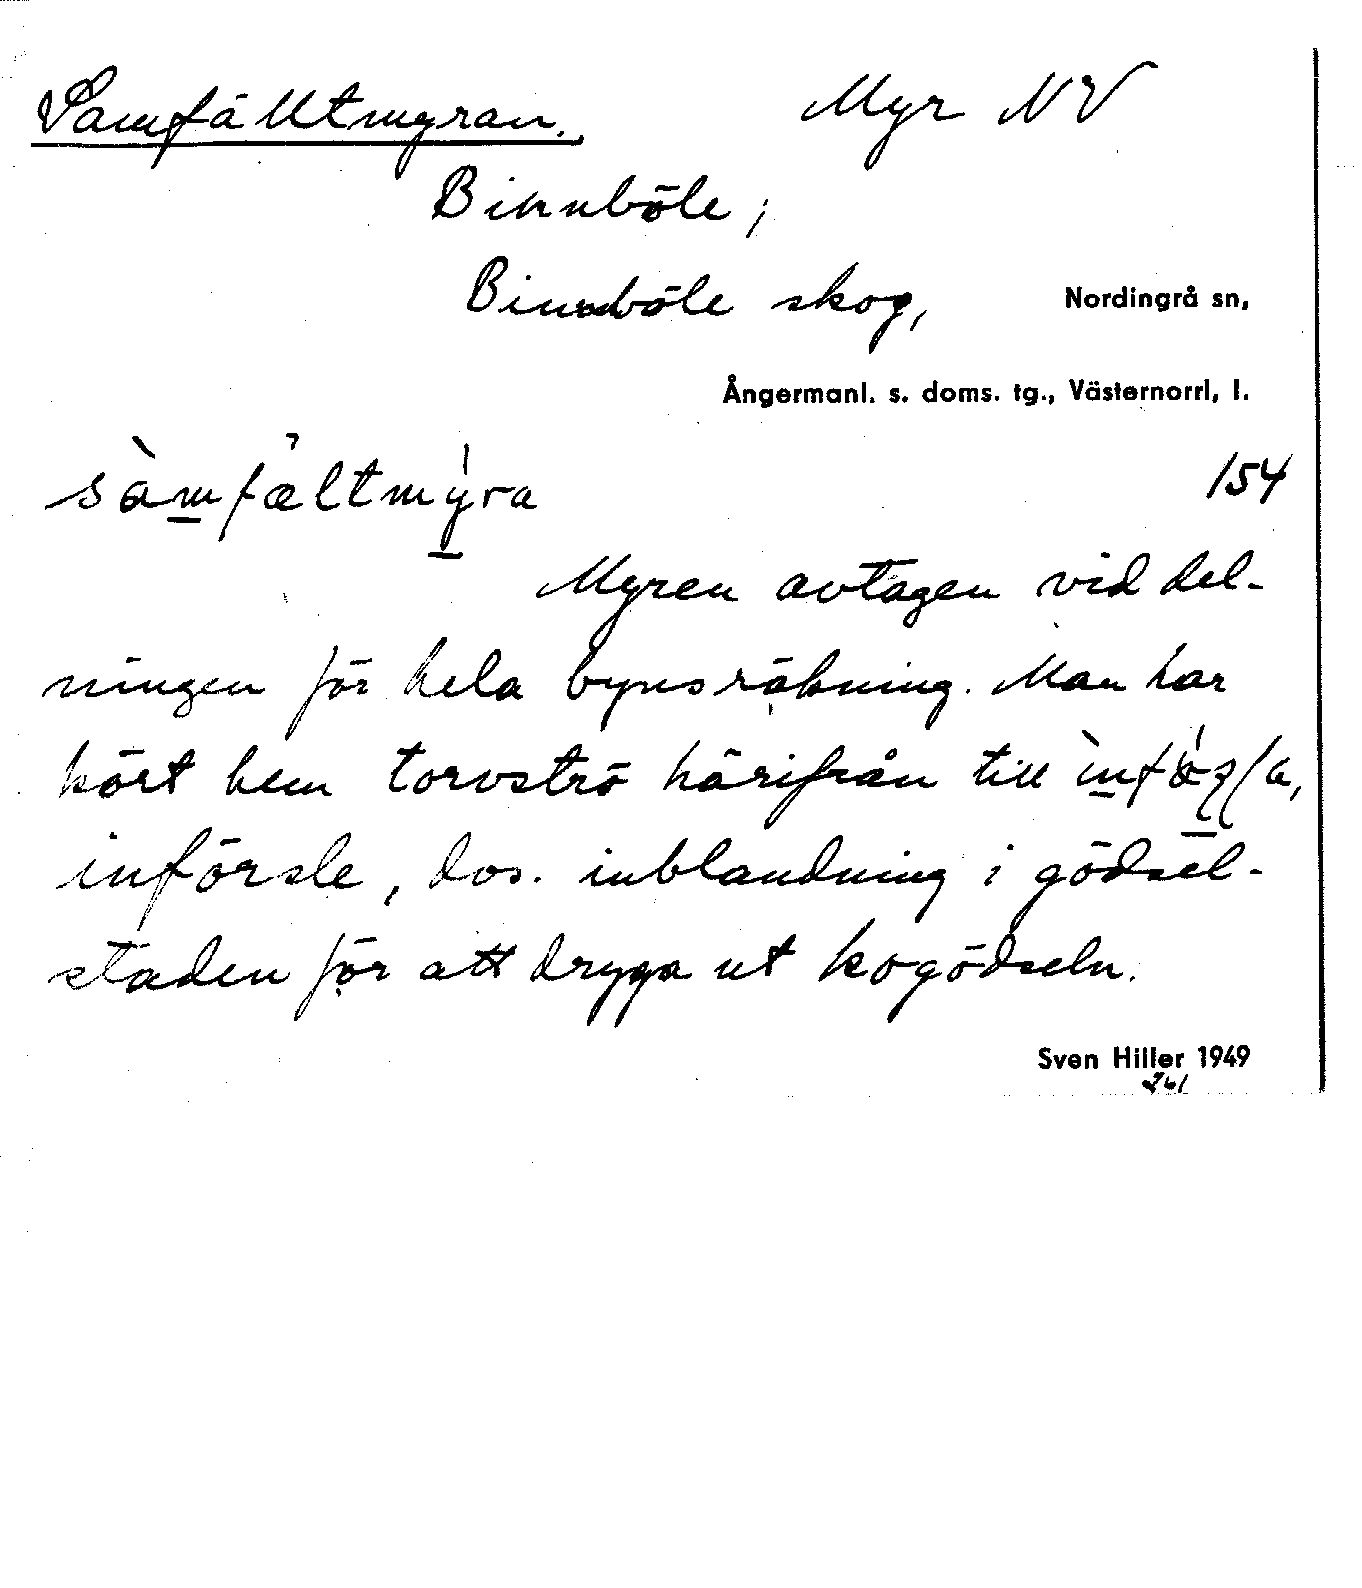 Samfälltmyran. Myr NV
Binnböle;
Binnböle skog, Nordingrå sn,
Ångermanl. s. doms. tg., Västernorrl. l.
sàmfæltmýra 154
Myren avtagen vid del-
ningen för hela byns räkning. Man har
kört hem torvströ härifrån till
införsle, dvs. inblandning i gödsel-
staden för att dryga ut kogödseln.
Sven Hiller 1949
261